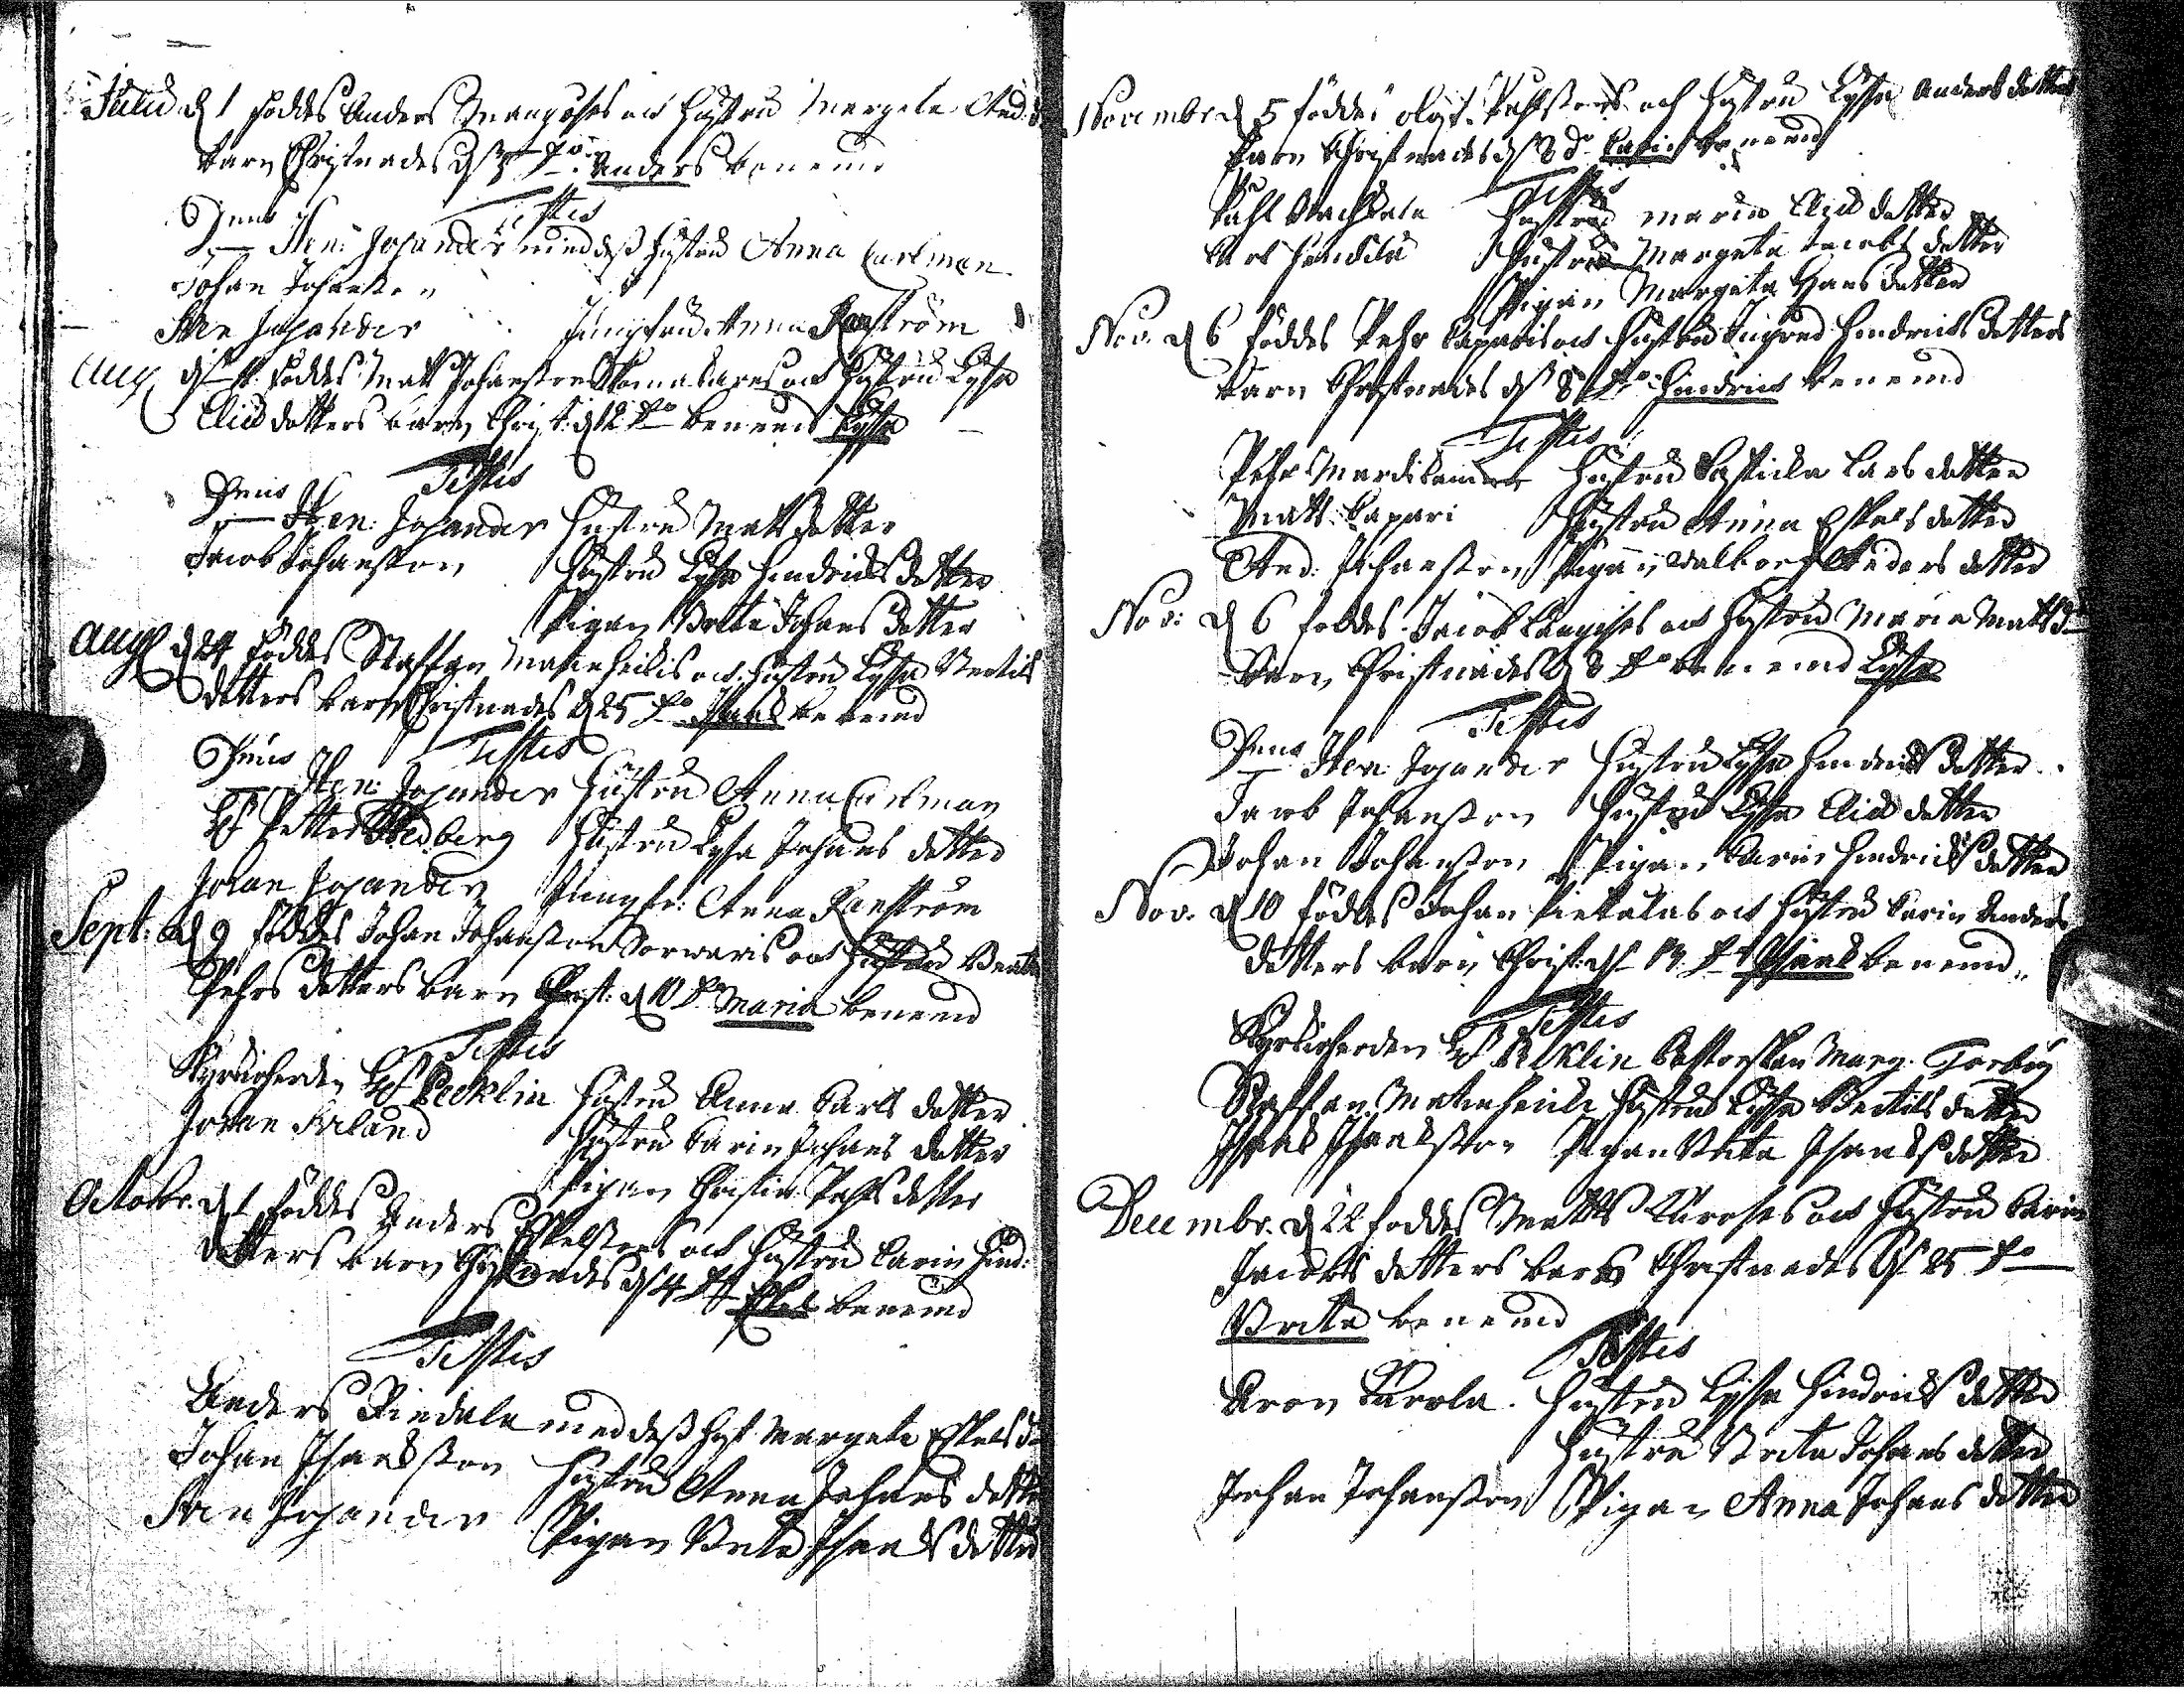 Julii d 1 föddes Anders Mangoses och hustru Margeta And:
barn Christnades d 3 do Anders benemd
Testes
Dnus Hen: Jojander med dess hustru Anna Carlman
Johan Johansson
Hen Jojander Jungfru Anna Ranström
Aug föddes Matts Johansson och hustru Lysa
Eliæ dotters barn Christ: d 12 do benemd Lysa
Testes
Dnus Hen: Jojander hustru Matts dotter
Jacob Johansson hustru Lysa Hendrichs dotter
Pigan Brita Johans dotter
Aug d 24 föddes Staffan Mateheikis och hustru Lysa Bertils
dotters barn Christnades d 25 do Isaac benemd
Testes
Dnus Hen: Jojander hustru Anna Carlman
Petter Hedberg hustru Lysa Johans dotter
Johan Jojander Jungfr: Anna Ranström
Sept: d 9 föddes Johan Johansson Sorwaris och hustru Beata
Pehrs dotters barn Christ: d 10 do Maria benemd
Testes
Kyrkioherden Hr Pecklin hustru Anna Carls dotter
Johan Arlund hustru Carin Johans dotter
Pigan Christin Pahls dotter
Octobr. d 1 föddes Anders Eskelssons och hustru Carin Hind:
dotters barn Christnades d 4 do Eskel benemd
Testes
Anders Riendala med dess hust Margeta Eskels d:
Johan Isaacsson hustru Anna Johans dotter
Hen Jojander Pigan Brita Isaacs dotter
Novembr d 5 föddes Olof Pahlssons och hustru Lysa Anders dotters
barn Christnades d 8 do Carin benemd
Testes
Pahl hustru Maria Eliæ dotter
hustru Margeta Jacobs dotter
Pigan Margeta Hans dotter
Nov. d 6 föddes Pehr Kaparis och hustru Ingred Hendrichs dotters
barn Christnades d 8 do Hendrich benemd
Testes
Pehr hustru Lars dotter
Matts Kapari hustru Anna Eskels dotter
And: Johansson Pigan Walborg Anders dotter
Nov: d 6 föddes Jacob och hustru Maria Matts d:
barn Christnades d 8 do benemd Lysa
Testes
Dnus Hen: Jojander hustru Lysa Hendrichs dotter
Jacob Johansson hustru Lysa Eliæ dotter
Johan Johansson Pigan Carin Hendrichs dotter
Nov. d 10 föddes Johan Pietalas och hustru Carin Anders
dotters barn Christ: d 13 do Isaac benemd
Testes
Kyrkioherden Hr Pecklin Pastorskan Marg. Forbus
Staffan Mateheicki hustru Lysa Bertils dotter
Isaac Isaacsson Pigan Brita Isaacs dotter
Decembr. d 22 föddes Matts Kiroses och hustru Carin
Jacobs dotters barn Christnades d 25 do
Brita benemd
Testes
Aron Karola. hustru Lysa Hindrichs dotter
hustru Brita Johans dotter
Johan Johansson Pigan Anna Johans dotter